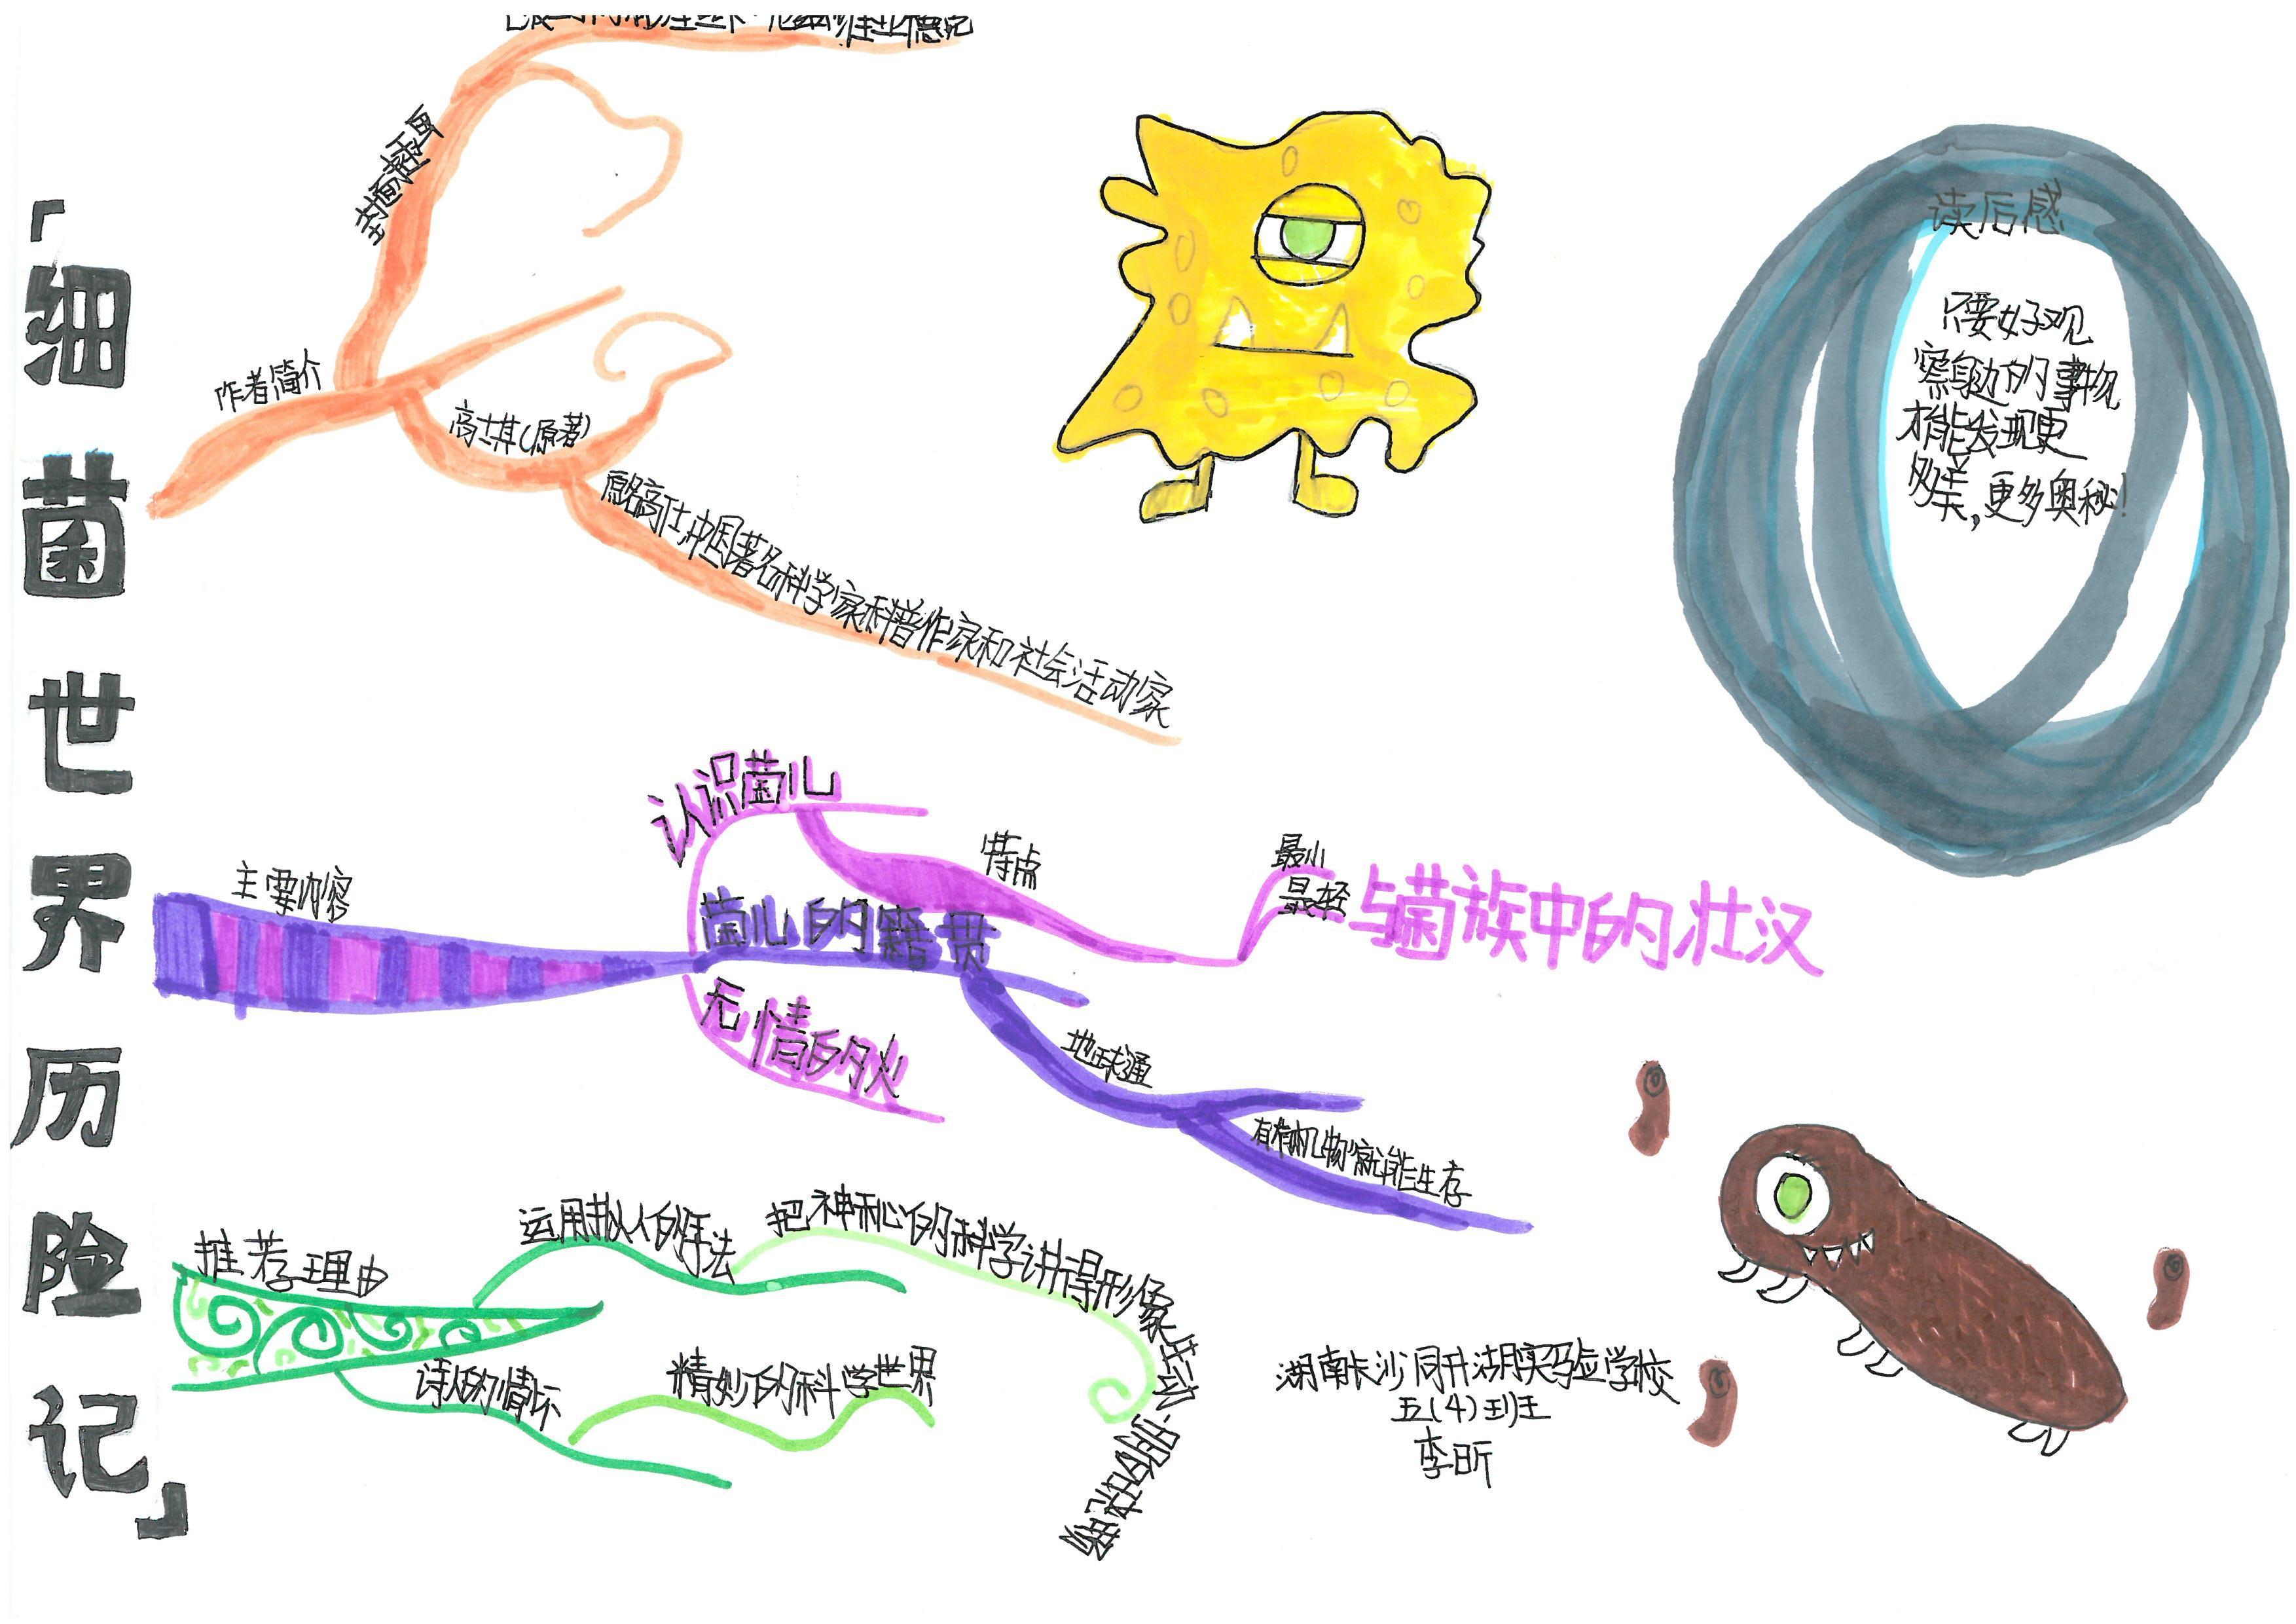 「细菌世界历险记」
作者简介
高士其(原著)
原名高仕𨱑中国著名科学家科普作家和社会活动家
读后感
只要好观
察身边的事物
才能发现更
多美,更多奥秘!
主要内容
认识菌儿
特点
最小
最轻
与菌族中的壮汉
菌儿的籍贯
地球通
有有机物就能生存
无情的火
推荐理由
运用拟人的手法
把神秘的科学讲得形象生动
诗人的情怀
精妙的科学世界
湖南长沙同升湖实验学校
五(4)班
李昕